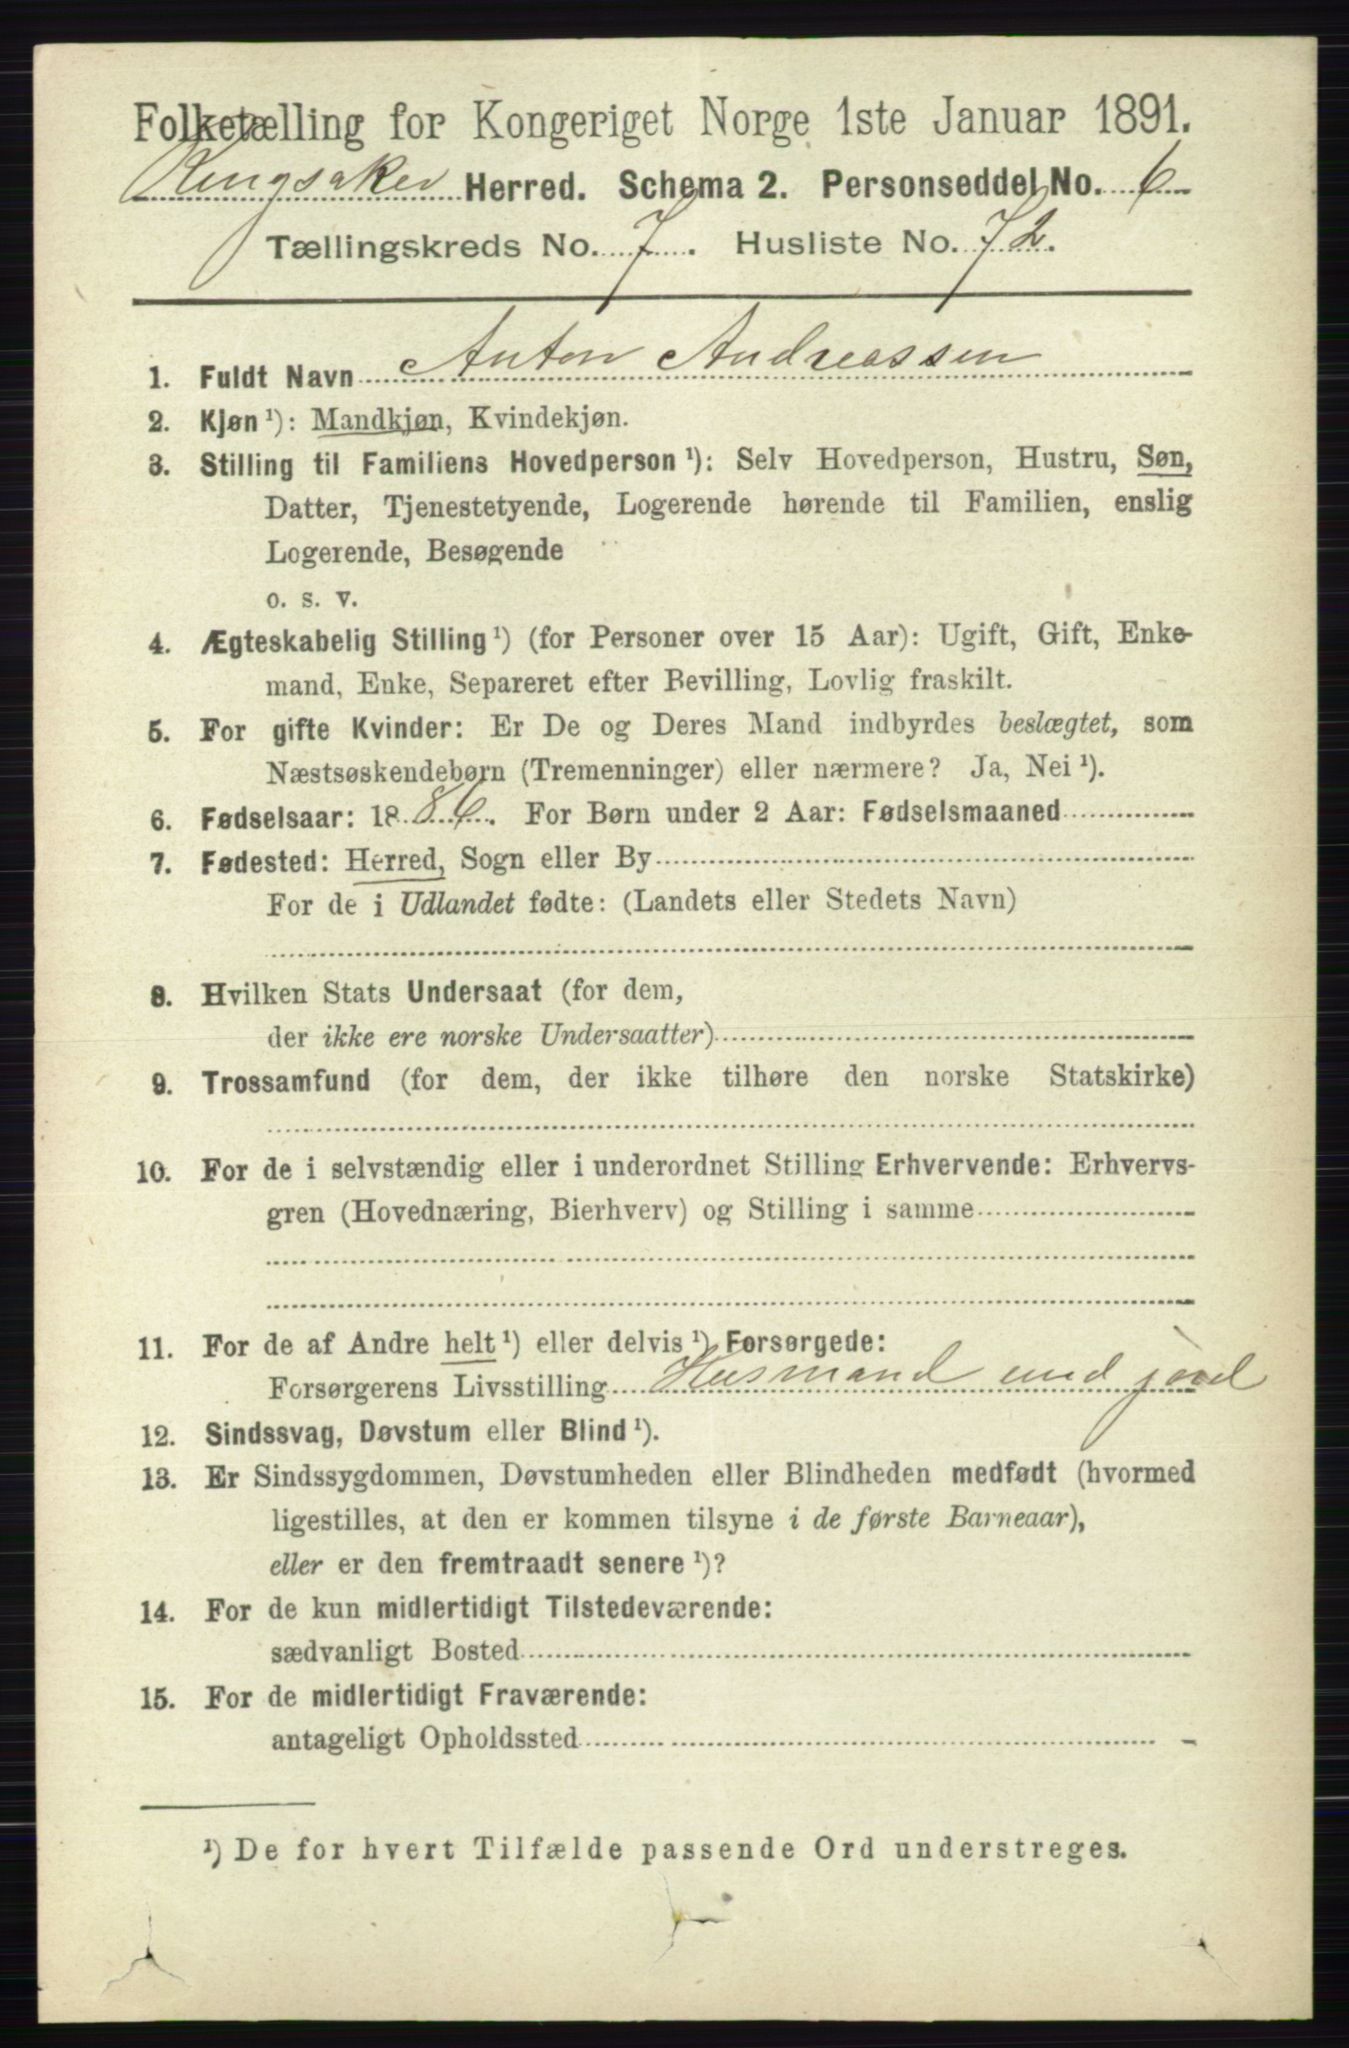 Folketælling for Kongeriget Norge 1ste Januar 1891.
Ringsaker Herred. Schema 2. Personseddel No. 6
Tællingskreds No. 7. Husliste No. 72.
1. Fuldt Navn Anton Andreassen
2. Kjøn ¹): Mandkjøn, Kvindekjøn.
3. Stilling til Familiens Hovedperson ¹): Selv Hovedperson, Hustru, Søn,
Datter, Tjenestetyende, Logerende hørende til Familien, enslig
Logerende, Besøgende
o. s. v.
4. Ægteskabelig Stilling ¹) (for Personer over 15 Aar): Ugift, Gift, Enke-
mand, Enke, Separeret efter Bevilling, Lovlig fraskilt.
5. For gifte Kvinder: Er De og Deres Mand indbyrdes beslægtet, som
Næstsøskendebørn (Tremenninger) eller nærmere? Ja, Nei ¹).
6. Fødselsaar: 1886. For Børn under 2 Aar: Fødselsmaaned
7. Fødested: Herred, Sogn eller By
For de i Udlandet fødte: (Landets eller Stedets Navn)
8. Hvilken Stats Undersaat (for dem,
der ikke ere norske Undersaatter)
9. Trossamfund (for dem, der ikke tilhøre den norske Statskirke)
10. For de i selvstændig eller i underordnet Stilling Erhvervende: Erhvervs-
gren (Hovednæring, Bierhverv) og Stilling i samme
11. For de af Andre helt ¹) eller delvis ¹) Forsørgede:
Forsørgerens Livsstilling Husmand med jord
12. Sindssvag, Døvstum eller Blind ¹).
13. Er Sindssygdommen, Døvstumheden eller Blindheden medfødt (hvormed
ligestilles, at den er kommen tilsyne i de første Barneaar),
eller er den fremtraadt senere ¹)?
14. For de kun midlertidigt Tilstedeværende:
sædvanligt Bosted
15. For de midlertidigt Fraværende:
antageligt Opholdssted
¹) De for hvert Tilfælde passende Ord understreges.